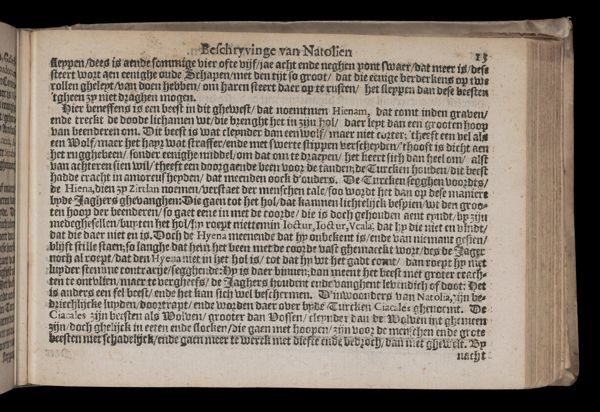 Beschryvinge van Natolien
13
sleppen/dees is aende sommige vier ofte vijf/jae acht ende neghen pont swaer/dat meer is/dese
steert wort aen eenighe oude Schapen/met den tijt so groot/ dat die eenige herderkens op twe
rollen gheleyt/van doen hebben/ om haren steert daer op te rusten/ het sleppen dan dese beesten
'tgheen zy niet draghen mogen.
Hier beneffens is een beest in dit ghewest/ dat noemtmen Hienam, dat comt inden graven/
ende treckt de doode lichamen wt/die brenght het in zijn hol/ daer leyt dan een grooten hoop
van beenderen om. Dit beest is wat cleynder dan een wolf/ maer niet corter; 'theeft een vel als
een Wolf/maer het hayr wat straffer/ende met swerte stippen verscheyden/'thooft is dicht aen
het rugghebeen/ sonder eenighe middel/om dat om te draeyen/ het keert sich dan heel om/ alst
van achteren sien wil/'theeft een doorgaende been voor de tanden;de Turcken houden/dit beest
hadde cracht in amoreusheyden/ dat meenden oock d'ouders. De Turcken segghen voordts/
de Hiena,dien zy Zirtlan noemen/verstaet der menschen tale/soo wordt het dan op dese maniere
byde Jaghers ghevanghen:Die gaen tot het hol/dat kannen lichtelijck bespien/wt den groo-
ten hoop der beenderen/ so gaet eene in met de coorde/ die is doch gehouden aent eyndt/by zijn
medeghesellen/buyten het hol/hy roept niettemin Ioctur, Ioctur, Vcala, dat hy die niet en vindt/
dat die daer niet en is. Doch de Hyena meenende dat hy onbekent is/ende van niemant gesien/
blijft stille staen;so langhe dat hem het been met de coorde vast ghemaeckt wort/des de Jager
noch al roept/dat den Hyena niet in het hol is/ tot dat hy wt het gadt comt/ dan roept hy met
luyder stemme contrarije/segghende:Hy is daer binnen;dan meent het beest met groter crach-
ten te ontvlien/maer te vergheefs/ de Jaghers houdent ende vanghent levendich of doot: Het
is anders een fel beest/ ende het kan sich wel beschermen. D'inwoonders van Natolia,zijn be-
driechlijcke luyden/dootrapt/ ende worden daer over byde Turcken Ciacales ghenoemt. De
Ciacales zijn beesten als Wolven/ grooter dan Vossen/ cleynder dan de Wolven int ghemeen
zijn/doch ghelijck in eeten ende slocken/die gaen met hoopen/zijn voor de menschen ende grote
beesten niet schadelijck/ende gaen meer te werck met diefte ende bedroch/dan met ghewelt. By
nacht